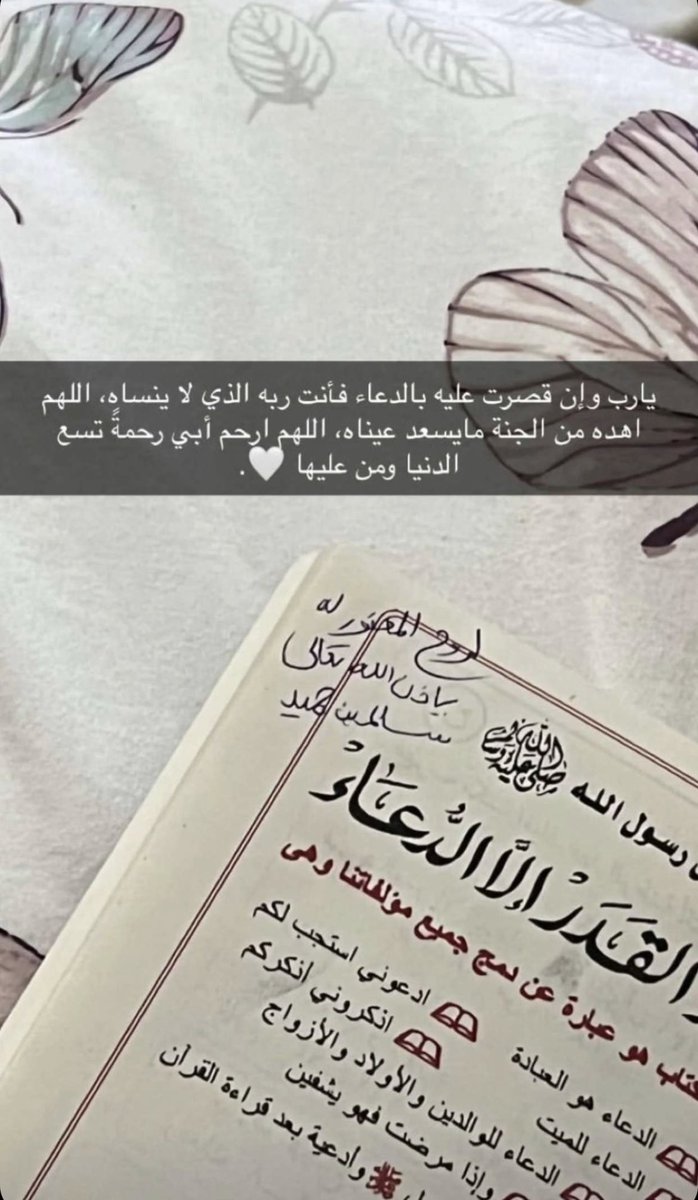 يارب وإن قصرت عليه بالدعاء فأنت ربه الذي لا ينساه، اللهم
اهده من الجنة مايسعد عيناه، اللهم ارحم أبي رحمةً تسع
الدنيا ومن عليها 🤍.
لروح المغفور له
بإذن الله تعالى
سالم بن حميد
رسول الله ﷺ
القَدَرَ إلَّا الدُّعَاءُ
كتاب هو عبارة عن دمج جميع مؤلفاتنا وهى
ادعوني استجب لكم
الدعاء هو العبادة
اذكروني اذكركم
الدعاء للميت
الدعاء للوالدين والأولاد والأزواج
وإذا مرضت فهو يشفين
ﷺ وأدعية بعد قراءة القرآن